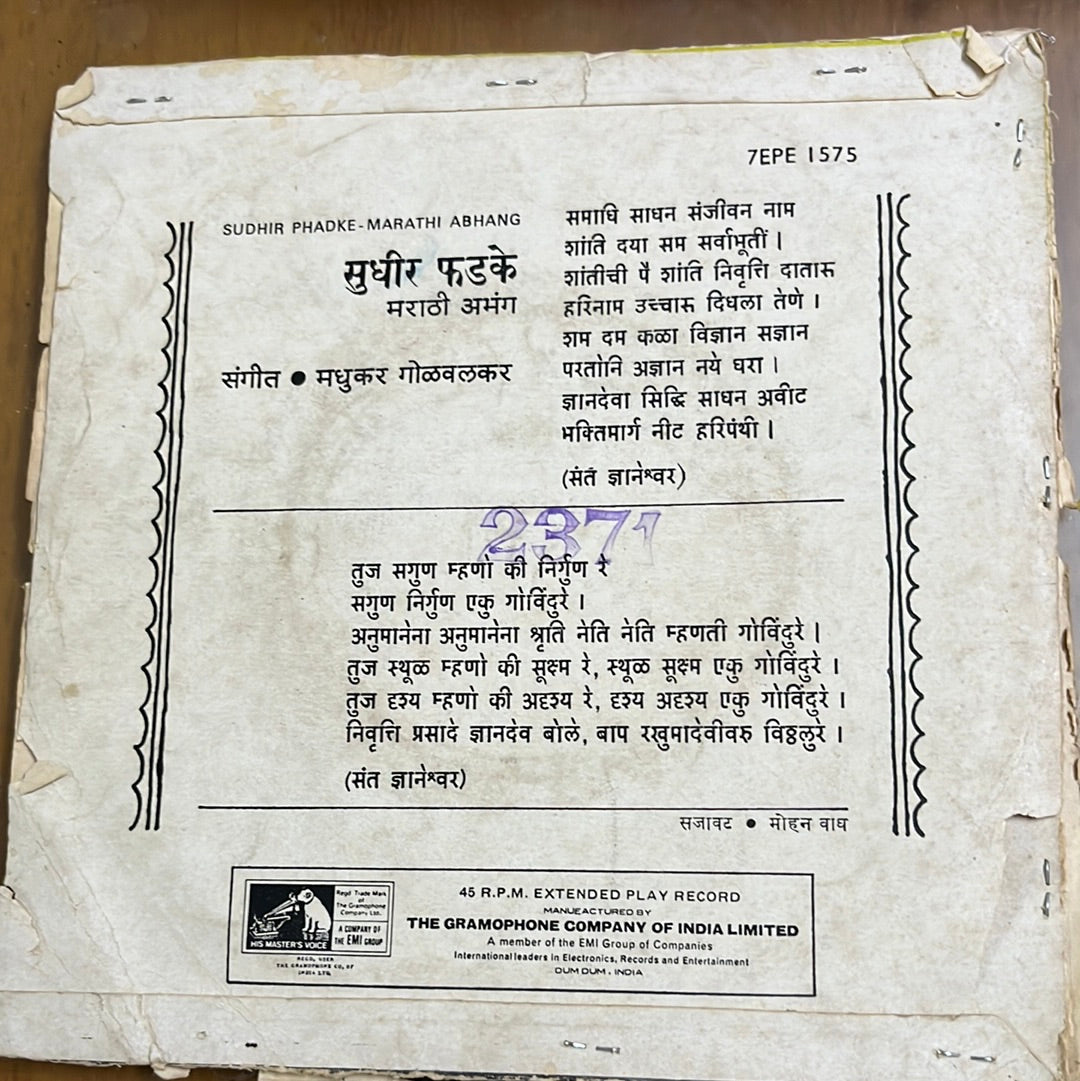 7EPE 1575
SUDHIR PHADKE-MARATHI ABHANG
सुधीर फडके
मराठी अभंग
संगीत ● मधुकर गोळवलकर
समाधि साधन संजीवन नाम
शांति दया सम सर्वाभूतीं ।
शांतीची पै शांति निवृत्ति दातारू
हरिनाम उच्चारू दिधला तेणे ।
शम दम कळा विज्ञान सज्ञान
परतोनि अज्ञान नये घरा ।
ज्ञानदेवा सिद्धि साधन अवीट
भक्तिमार्ग नीट हरिपंथी ।
(संत ज्ञानेश्वर)
2371
तुज सगुण म्हणो की निर्गुण रे
सगुण निर्गुण एकु गोविंदुरे ।
अनुमानेना अनुमानेना श्रृति नेति नेति म्हणती गोविंदुरे ।
तुज स्थूळ म्हणो की सूक्ष्म रे, स्थूळ सूक्ष्म एकु गोविंदुरे ।
तुज दृश्य म्हणो की अदृश्य रे, दृश्य अदृश्य एकु गोविंदुरे ।
निवृत्ति प्रसादे ज्ञानदेव बोले, बाप रखुमादेवीवरु विठ्ठलुरे ।
(संत ज्ञानेश्वर)
सजावट ● मोहन वाघ
Regd Trade Mark
of
The Gramophone
Company Ltd.
A COMPANY OF
THE EMI GROUP
HIS MASTER'S VOICE
REGD. USER
THE GRAMOPHONE CO. OF
INDIA LTD.
45 R.P.M. EXTENDED PLAY RECORD
MANUFACTURED BY
THE GRAMOPHONE COMPANY OF INDIA LIMITED
A member of the EMI Group of Companies
International leaders in Electronics, Records and Entertainment
DUM DUM, INDIA